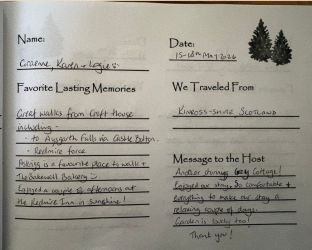 Name:
Graeme, Karen + Logie
Favorite Lasting Memories
Great walks from Croft house
including -
- to Aysgarth Falls via Castle Bolton.
- Redmire force
is a favourite place to walk +
The Bakewell Bakery
Enjoyed a couple of afternoons at
the Redmire Inn in sunshine!
Date:
15-18th May 2026
We Traveled From
Kinross-shire Scotland
Message to the Host
Another stunning Cottage!
Enjoyed our stay. So comfortable +
everything to make our stay a
relaxing couple of days.
Garden is lovely too!
Thank you!